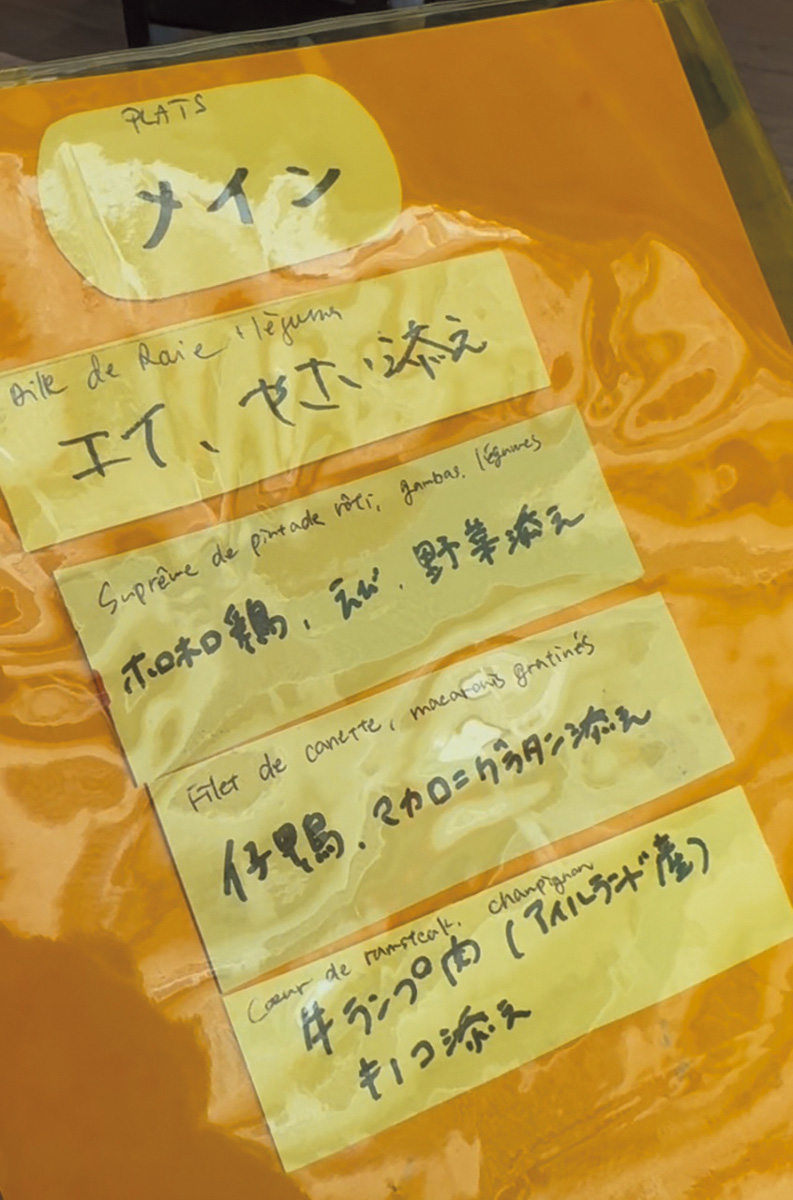 PLATS
メイン
Aile de Raie + légumes
エイ、やさい添え
Suprême de pintade rôti, gambas, légumes
ホロホロ鶏、えび、野菜添え
Filet de canette, macaronis gratinés
仔鴨、マカロニグラタン添え
Cœur de rumsteak, champignon
牛ランプ肉（アイルランド産）
キノコ添え